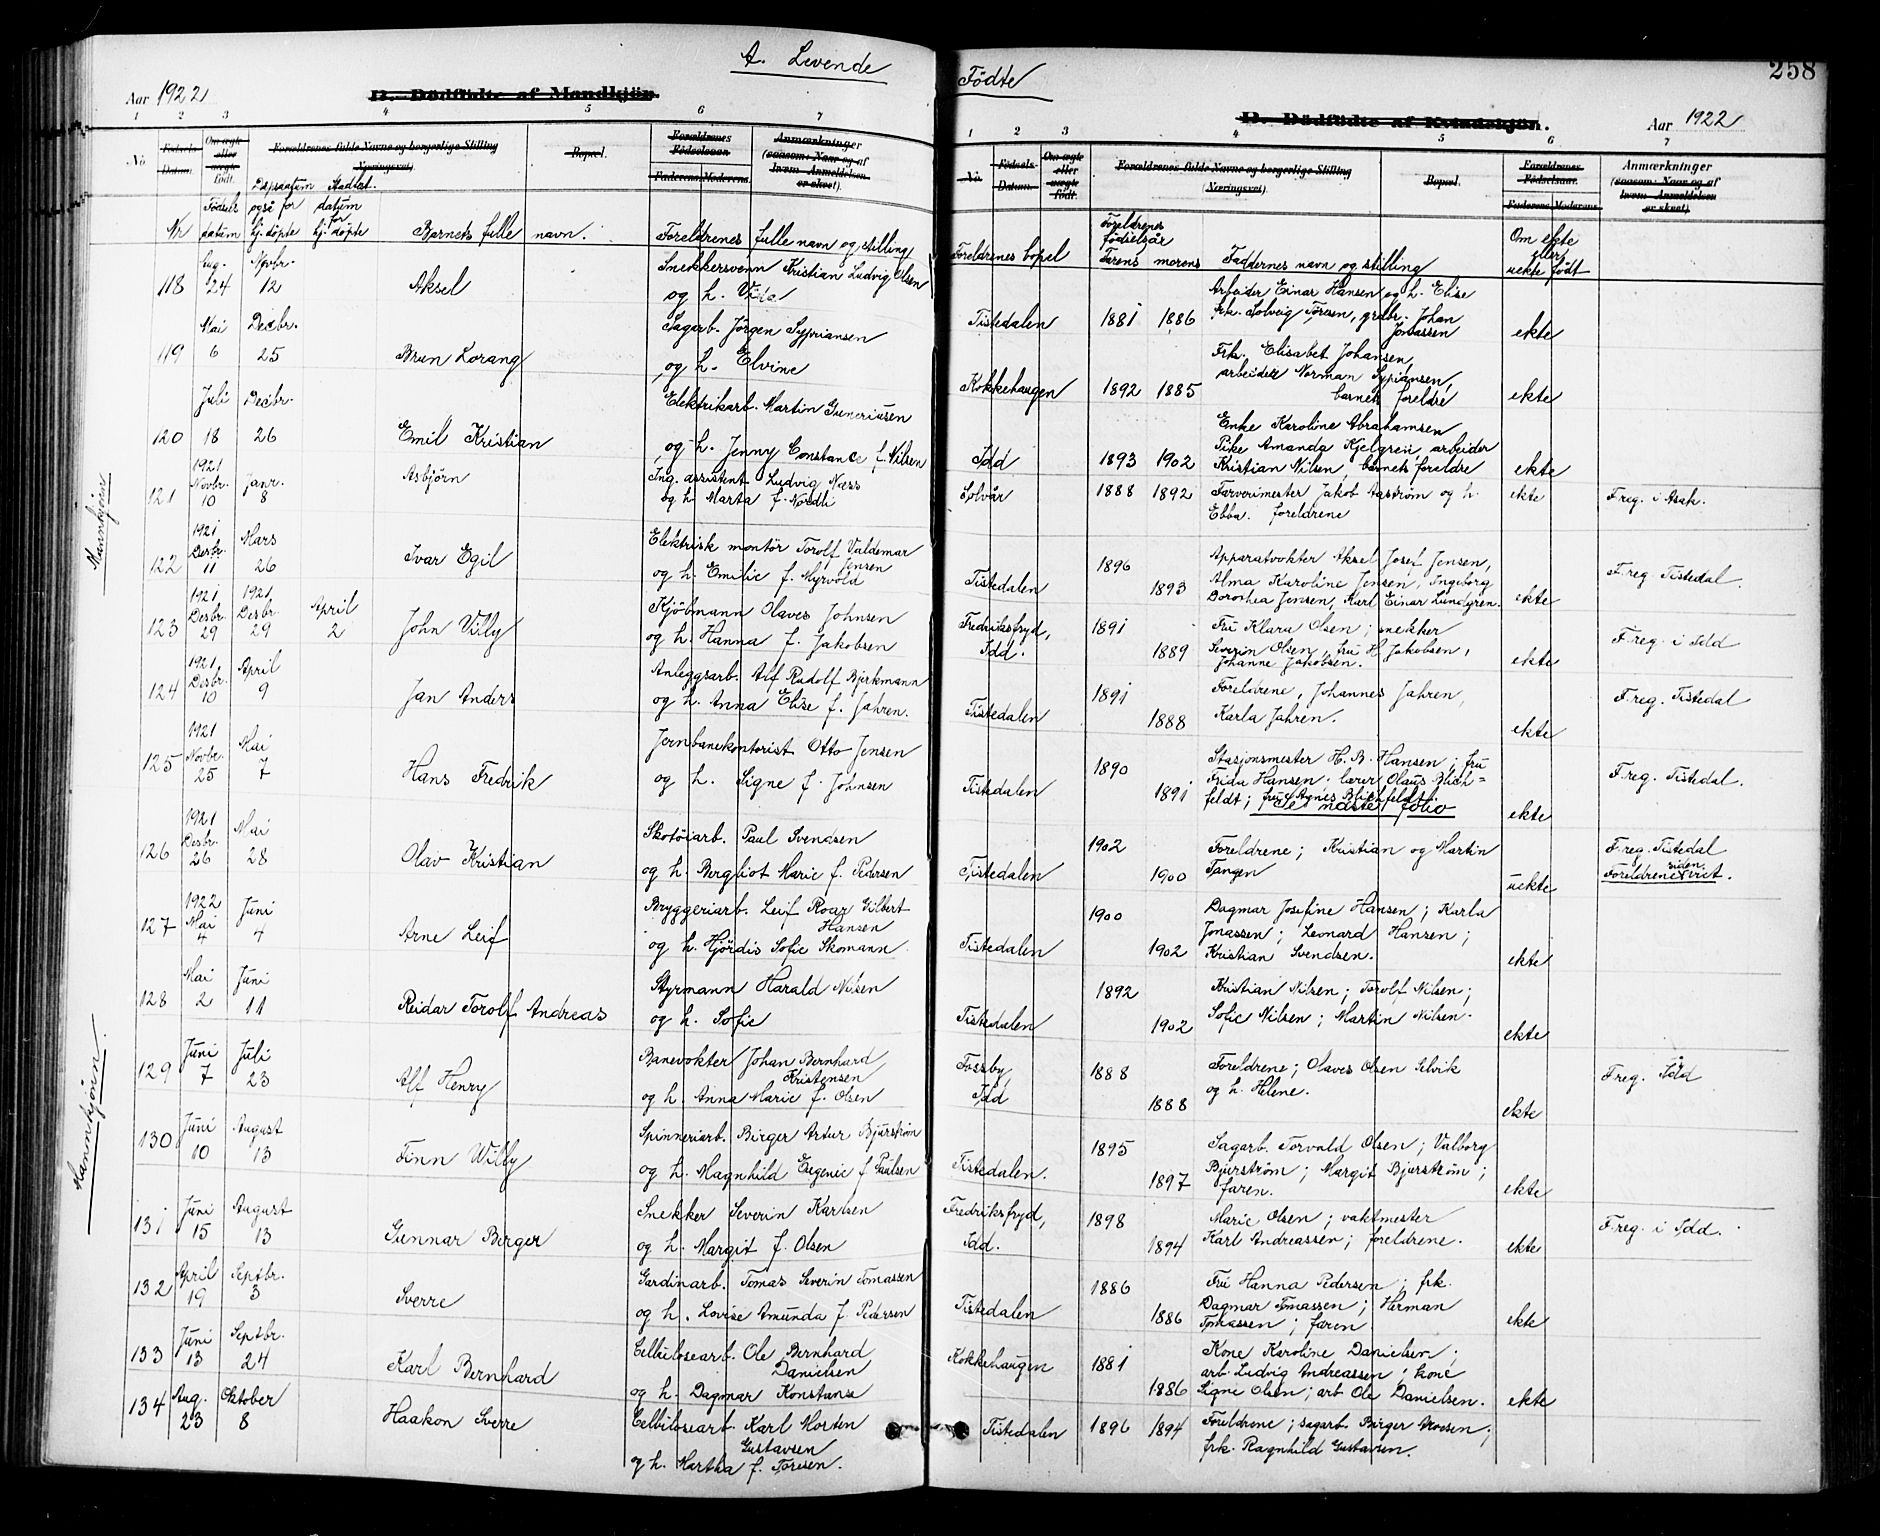 A. Levende Födte
258
Aar 1922
B. Dödfödte af Mandkjön.
1 2 3 4 5 6 7
No
Födsels-Datum.
Om ægte eller uægte födt.
Forældrenes fulde Navne og borgerlige Stilling (Næringsvei)
Bopæl.
Forældrenes Födselsaar. Faderens Moderens
Anmærkninger (saasom: Naar og af hvem Anmeldelsen er skret).
Nr
Födsels datum
Dåpsdatum også for hj. döpte
Stadfest. datum for hj. döpte
Barnets fulle navn.
Foreldrenes fulle navn og stilling
D. Dödfödte af Kvindekjön.
Aar 1922
1 2 3 4 5 6 7
No.
Födsels-Datum.
Om ægte eller uægte födt.
Forældrenes fulde Navne og borgerlige Stilling (Næringsvei)
Bopæl.
Forældrenes Födselsaar. Faderens Moderens
Anmærkninger (saasom: Naar og af hvem Anmeldelsen er skret)
Foreldrenes bopel
Foreldrenes födselsår
Farens morens
Faddernes navn og stilling
Om ekte eller uekte födt
Mannkjönn
118 Aug. 24 Novbr. 12 Aksel Snekkersvenn Kristian Ludvig Olsen
og h.
Tistedalen 1881 1886 Arbeider Einar Hansen og h. Elise
frk. Solveig Toresen, grdbr. Johan
Jonassen ekte
119 Mai 6 Decbr. 25 Brun Lorang Sagarb. Jörgen Sypriansen
og h. Elvine
Kokkehaugen 1892 1885 Frk. Elisabet Johansen,
arbeider Norman Sypriansen,
barnets foreldre ekte
120 Juli 18 Decbr. 26 Emil Kristian Elektrikarb. Martin Guneriusen
og h. Jenny Constance f. Nilsen
Idd 1893 1902 Enke Karoline Abrahamsen
Pike Amanda Kjelgren, arbeider
Kristian Nilsen barnets foreldre ekte
121 1921 Novbr. 10 Janr. 8 Asbjörn Ing. assistent Ludvig Næss
og h. Marta f. Nordli
Solvår 1888 1892 Farverimester Jakob Aaström og h.
Ebba. foreldrene ekte F. reg. i Asak.
122 1921 Desbr. 11 Mars 26 Ivar Egil Elektrisk montör Torolf Valdemar
Jensen
og h. Emilie f. Myrvold
Tistedalen 1896 1893 Apparatvokter Aksel Josef Jensen,
Alma Karoline Jensen, Ingeborg
Dorothea Jensen, Karl Einar Lundgren. ekte F. reg. Tistedal.
123 1921 Desbr. 29 1921 Desbr. 29 April 2 John Villy Kjöbmann Olaves Johnsen
og h. Hanna f. Jakobsen
Fredriksfryd, Idd. 1891 1889 Fru Klara Olsen; snekker
Severin Olsen, fru H. Jakobsen,
Johanne Jakobsen. ekte F. reg. i Idd
124 1921 Desbr. 10 April 9 Jan Anders Anleggsarb. Alf Rudolf Bjerkmann
og h. Anna Elise f. Jahren.
Tistedalen 1891 1888 Foreldrene, Johannes Jahren,
Karla Jahren. ekte F. reg. Tistedal
125 1921 Novbr. 25 Mai 7 Hans Fredrik Jernbanekontorist Otto Jensen
og h. Signe f. Johnsen
Tistedalen 1890 1891 Stasjonsmester H. B. Hansen; fru
Frida Hansen; lærer Olaus Blich=
feldt; fru Agnes Blichfeldt
Se næste folio ekte F. reg. Tistedal.
126 1921 Desbr. 26 Mai 28 Olav Kristian Skotöiarb. Paul Svendsen
og h. Bergliot Marie f. Pedersen
Tistedalen 1902 1900 Foreldrene; Kristian og Martin
Tangen uekte F. reg. Tistedal
Foreldrene siden viet.
127 1922 Mai 4 Juni 4 Arne Leif Bryggeriarb. Leif Roar Gilbert
Hansen
og h. Hjördis Sofie Skomann
Tistedalen 1900 1902 Dagmar Josefine Hansen; Karla
Jonassen; Leonard Hansen;
Kristian Svendsen. ekte
128 Mai 2 Juni 11 Reidar Torolf Andreas Styrmann Harald Nilsen
og h. Sofie
Tistedalen 1892 1902 Kristian Nilsen; Torolf Nilsen;
Sofie Nilsen; Martin Nilsen. ekte
Mannkjönn.
129 Juni 7 Juli 23 Alf Henry Banevokter Johan Bernhard
Kristensen
og h. Anna Marie f. Olsen
Fossby, Idd 1888 1888 Foreldrene; Olaves Olsen Selvik
og h. Helene. ekte F. reg. Idd
130 Juni 10 August 13 Finn Willy Spinneriarb. Birger Artur Bjurström
og h. Magnhild Eugenie f. Paulsen
Tistedalen. 1895 1897 Sagarb. Torvald Olsen; Valborg
Bjurström; Margit Bjurström;
faren. ekte
131 Juni 15 August 13 Gunnar Birger Snekker Severin Karlsen
og h. Margit f. Olsen
Fredriksfryd, Idd. 1898 1894 Marie Olsen; vaktmester
Karl Andreassen; foreldrene. ekte F. reg. i Idd.
132 April 19 Septbr. 3 Sverre Gardinarb. Tomas Severin Tomassen
og h. Lovise Amunda f. Pedersen
Tistedalen 1886 1886 Fru Hanna Pedersen; frk.
Dagmar Tomassen; Herman
Tomassen; faren ekte
133 Juni 13 Septbr. 24 Karl Bernhard Cellulosearb. Ole Bernhard
Danielsen
og h. Dagmar Konstanse
Kokkehaugen 1881 1886 Kone Karoline Danielsen;
arb. Ludvig Andreassen; kone
Signe Olsen; arb. Ole Danielsen. ekte
134 Aug. 23 Oktober 8 Haakon Sverre Cellulosearb. Karl Morten
Gustavsen
og h. Martha f. Toresen.
Tistedalen 1896 1894 Foreldrene; sagarb. Birger Moesen;
frk. Ragnhild Gustavsen.